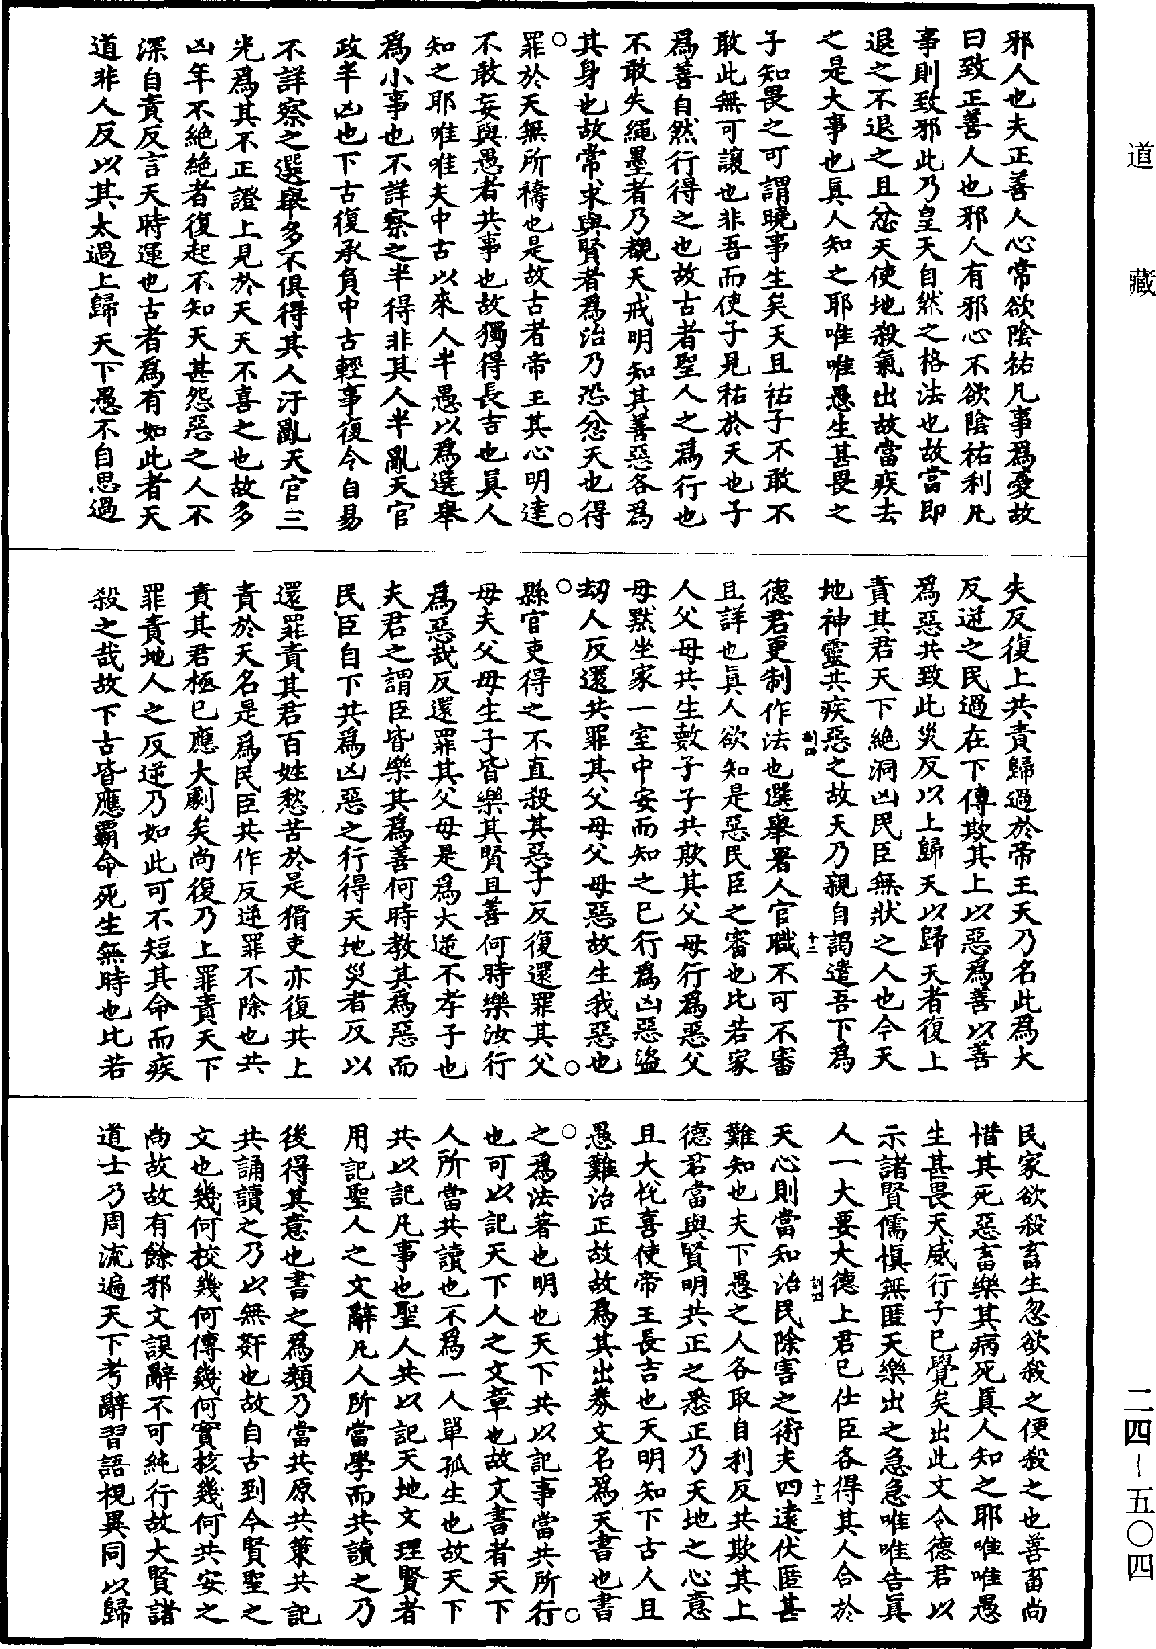 邪人也夫正善人心常欲陰祐凡事爲憂故
曰致正善人也邪人有邪心不欲陰祐利凡
事則致邪此乃皇天自然之格法也故當即
退之不退之且忿天使地殺氣出故當疾去
之是大事也眞人知之耶唯唯愚生甚畏之
子知畏之可謂曉事生矣天且祐子不敢不
敢此無可讓也非吾而使子見祐於天也子
爲善自然行得之也故古者聖人之爲行也
不敢失繩墨者乃覩天戒明知其善惡各爲
其身也故常求與賢者爲治乃恐忿天也得
罪於天無所禱也是故古者帝王其心明達
不敢妄與愚者共事也故獨得長吉也眞人
知之耶唯唯夫中古以來人半愚以爲選舉
爲小事也不詳察之半得非其人半亂天官
政半凶也下古復承負中古輕事復令自易
不詳察之選舉多不俱得其人汙亂天官三
光爲其不正證上見於天天不喜之也故多
凶年不絶絶者復起不知天甚怨惡之人不
深自責反言天時運也古者爲有如此者天
道非人反以其太過上歸天下愚不自思過
失反復上共責歸過於帝王天乃名此爲大
反逆之民過在下傳欺其上以惡爲善以善
爲惡共致此災反以上歸天以歸天者復上
責其君天下絶洞凶民臣無狀之人也今天
地神靈共疾惡之故天乃親自謁遣吾下爲
德君更制作法也選舉署人官職不可不審
且詳也眞人欲知是惡民臣之審也比若家
人父母共生數子子共欺其父母行爲惡父
母默坐家一室中安而知之已行爲凶惡盜
劫人反還共罪其父母父母惡故生我惡也
縣官吏得之不直殺其惡子反復還罪其父
母夫父母生子皆樂其賢且善何時樂汝行
爲惡哉反還罪其父母是爲大逆不孝子也
夫君之謂臣皆樂其爲善何時教其爲惡而
民臣自下共爲凶惡之行得天地災者反以
還罪責其君百姓愁苦於是猾吏亦復共上
責於天名是爲民臣共作反逆罪不除也共
責其君極已應大劇矣尚復乃上罪責天下
罪責地人之反逆乃如此可不短其命而疾
殺之哉故下古皆應霸命死生無時也比若
民家欲殺畜生忽欲殺之便殺之也善畜尚
惜其死惡畜樂其病死眞人知之耶唯唯愚
生甚畏天威行子已覺矣出此文令德君以
示諸賢儒愼無匿天樂出之急急唯唯告眞
人一大要大德上君已仕臣各得其人合於
天心則當知治民除害之術夫四遠伏匿甚
難知也夫下愚之人各取自利反共欺其上
德君當與賢明共正之悉正乃天地之心意
且大忻喜使帝王長吉也天明知下古人且
愚難治正故故爲其出券文名爲天書也書
之爲法著也明也天下共以記事當共所行
也可以記天下人之文章也故文書者天下
人所當共讀也不爲一人單孤生也故天下
共以記凡事也聖人共以記天地文理賢者
用記聖人之文辭凡人所當學而共讀之乃
後得其意也書之爲類乃當共原共策共記
共誦讀之乃以無姧也故自古到今賢聖之
文也幾何校幾何傳幾何實核幾何共安之
尚故故有餘邪文誤辭不可純行故大賢諸
道士乃周流遍天下考辭習語視異同以歸
十二
十三
道藏
二四-五〇四